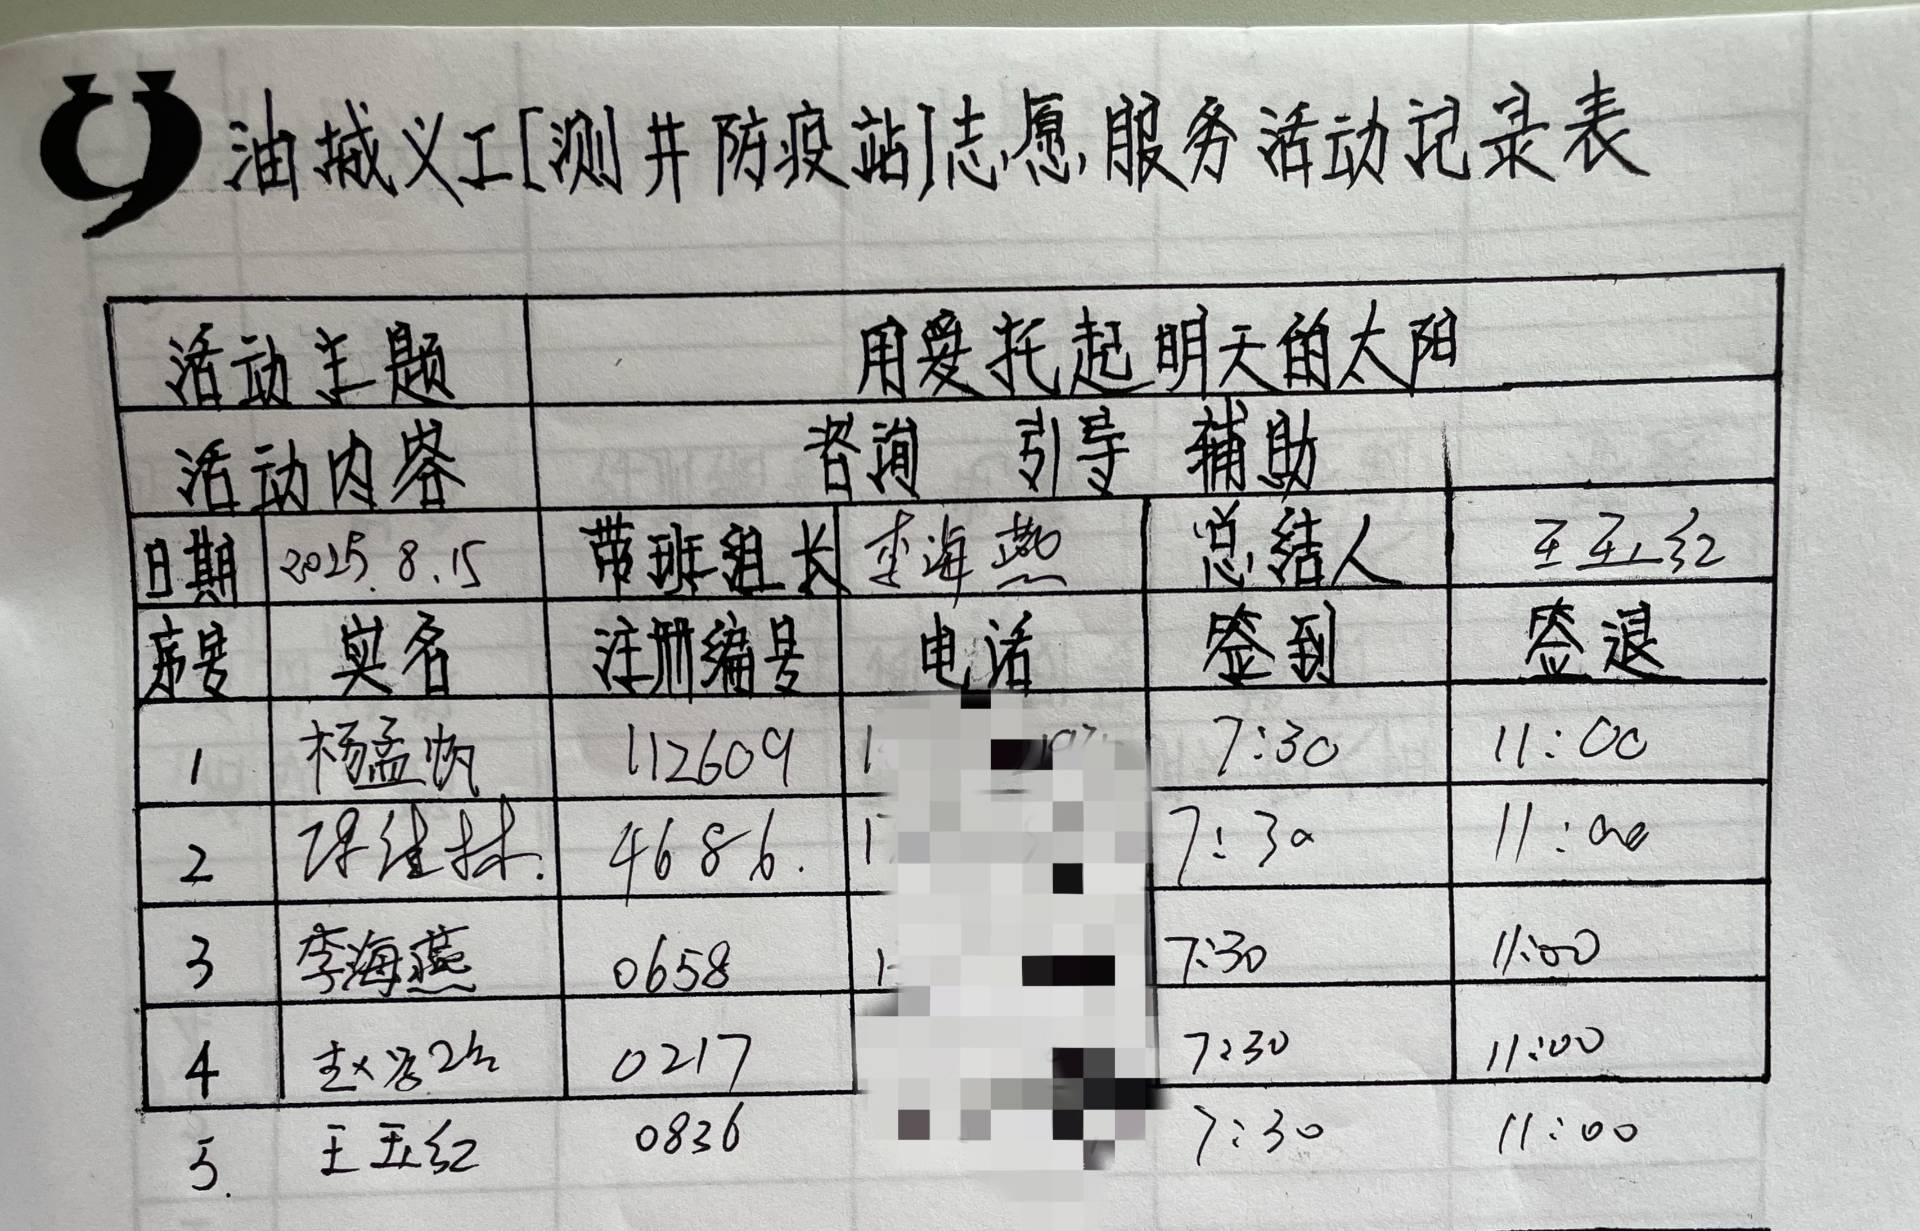 油城义工[测井防疫站]志愿服务活动记录表
活动主题 用爱托起明天的太阳
活动内容 咨询 引导 辅助
日期 2025.8.15 带班组长 李海燕 总结人 王玉红
序号 实名 注册编号 电话 签到 签退
1 杨孟帆 112609 7:30 11:00
2 4686. 7:30 11:00
3 李海燕 0658 7:30 11:00
4 0217 7:30 11:00
5. 王玉红 0836 7:30 11:00